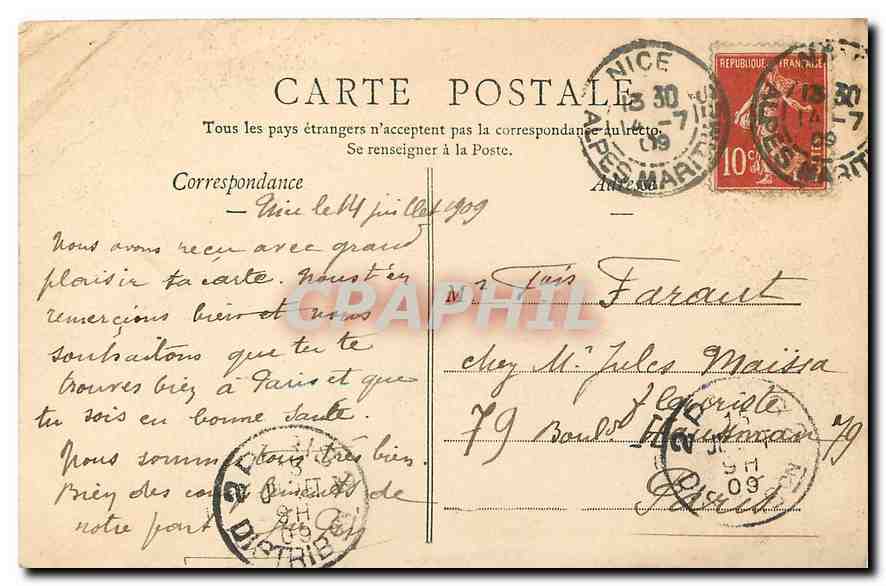 CARTE POSTALE
Tous les pays étrangers n'acceptent pas la correspondance au recto.
Se renseigner à la Poste.
Correspondance
Adresse
NICE
13 30
14-7
09
ALPES MARITIMES
REPUBLIQUE FRANÇAISE
10 c
13 30
14-7
09
Nice le 14 juillet 1909
Nous avons reçu avec grand
plaisir ta carte. Nous t'en
remerçions bien et nous
souhaitons que tu te
trouves bien à Paris et que
tu sois en bonne santé.
Nous sommes tous très bien.
Bien des compliments de
notre part
Mr Fois Faraut
chez Mr Jules Maïssa
fleuriste
79 Bould Haussmann 79
Paris
CPAPHIL
DISTRIB
9H
09
9H
09